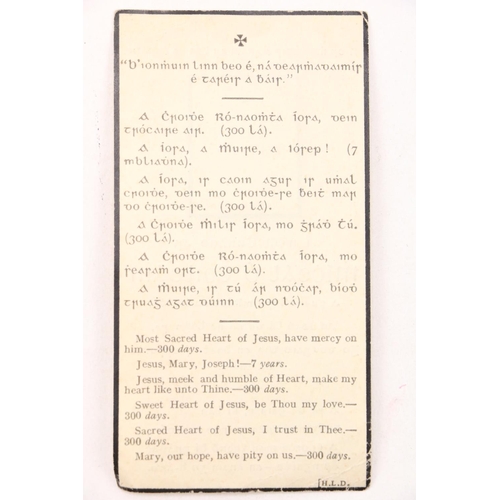 ✠
"b'ionṁuin linn beo é, ná dearmadaimís
é taréis a ḃáis."
A Ċroiḋe Ró-naoṁṫa Íosa, dein
trócaire air. (300 lá).
A Íosa, a Ṁuire, a Iósep! (7
mbliaḋna).
A Íosa, is caoin agus is uṁal
croiḋe, dein mo ċroiḋe-se ḃeiṫ mar
do ċroiḋe-se. (300 lá).
A Ċroiḋe Ṁilis Íosa, mo ġráḋ Ṫú.
(300 lá).
A Ċroiḋe Ró-naoṁṫa Íosa, mo
ṡeasaṁ ort. (300 lá).
A Ṁuire, is tú ár ndóċas, bíoḋ
truaġ agat dúinn (300 lá).
Most Sacred Heart of Jesus, have mercy on
him.—300 days.
Jesus, Mary, Joseph!—7 years.
Jesus, meek and humble of Heart, make my
heart like unto Thine.—300 days.
Sweet Heart of Jesus, be Thou my love.—
300 days.
Sacred Heart of Jesus, I trust in Thee.—
300 days.
Mary, our hope, have pity on us.—300 days.
[H.L.D.